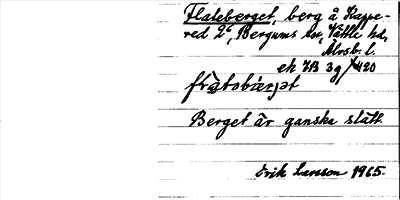 Flateberget, berg å Kappe-
red 2⁶, Bergums sn, Vättle hd,
Älvsb. l.
ek JB 3g /420
Berget är ganska slätt.
Erik Larsson 1965.